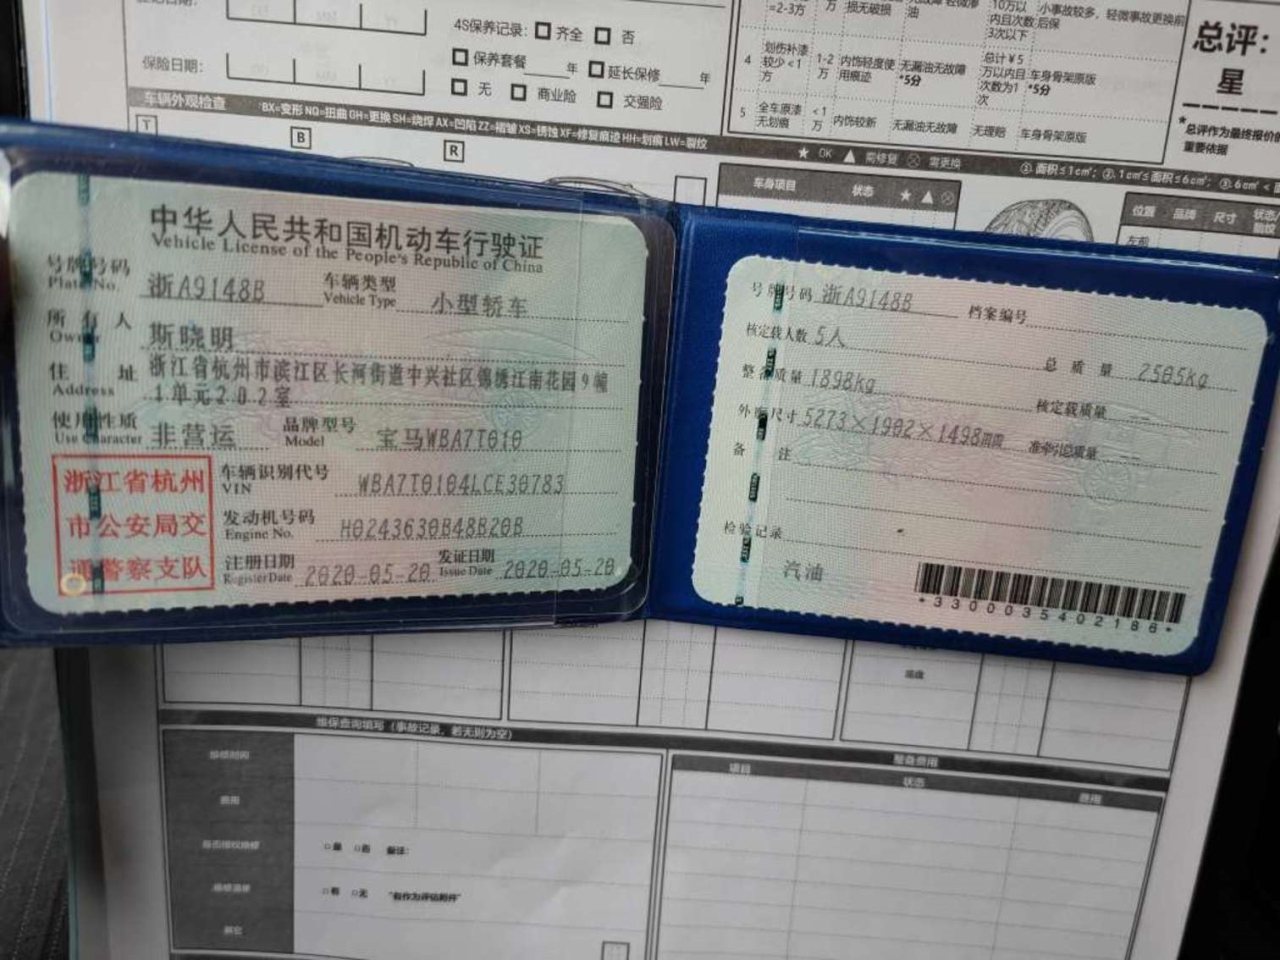 保险日期:
4S保养记录: 齐全 否
保养套餐 年 延长保修 年
无 商业险 交强险
=2-3万
4 划伤补漆较少<1万 1-2万 内饰轻度使用痕迹 无漏油无故障 *5分 总计¥5万以内且次数为1次 车身骨架原版 *5分
5 全车原漆无划痕 <1万 内饰较新 无漏油无故障 无理赔 车身骨架原版
总评:
星
*总评作为最终报价的重要依据
车辆外观检查 *BX=变形 NQ=扭曲 GH=更换 SH=烧焊 AX=凹陷 ZZ=褶皱 XS=锈蚀 XF=修复痕迹 HH=划痕 LW=裂纹
★ OK ▲ 需修复 ⊗ 需更换
①.面积≤1cm²; ②.1cm²≤面积≤6cm²; ③.6cm²<
T
B
R
车身项目 状态 ★ ▲ ⊗
位置 品牌 尺寸 状态
左前
中华人民共和国机动车行驶证
Vehicle License of the People's Republic of China
号牌号码 浙A9148B 车辆类型 小型轿车
Plate No. Vehicle Type
所有人 斯晓明
Owner
住址 浙江省杭州市滨江区长河街道中兴社区锦绣江南花园9幢
Address 1单元202室
使用性质 非营运 品牌型号 宝马WBA7T010
Use Character Model
浙江省杭州
市公安局交
通警察支队
车辆识别代号 WBA7T0104LCE30783
VIN
发动机号码 H0243630B48B20B
Engine No.
注册日期 2020-05-20 发证日期 2020-05-20
Register Date Issue Date
号牌号码 浙A9148B 档案编号
核定载人数 5人 总质量 2505kg
整备质量 1898kg 核定载质量 --
外廓尺寸 5273×1902×1498mm 准牵引总质量 --
备注
检验记录
汽油
*3300035402186*
维保查询填写 (事故记录, 若无则为空)
整备费用
维修时间
项目 状态 费用
费用
是否授权维修 □是 □否 备注:
维修清单 □有 □无 "有作为评估附件"
其它